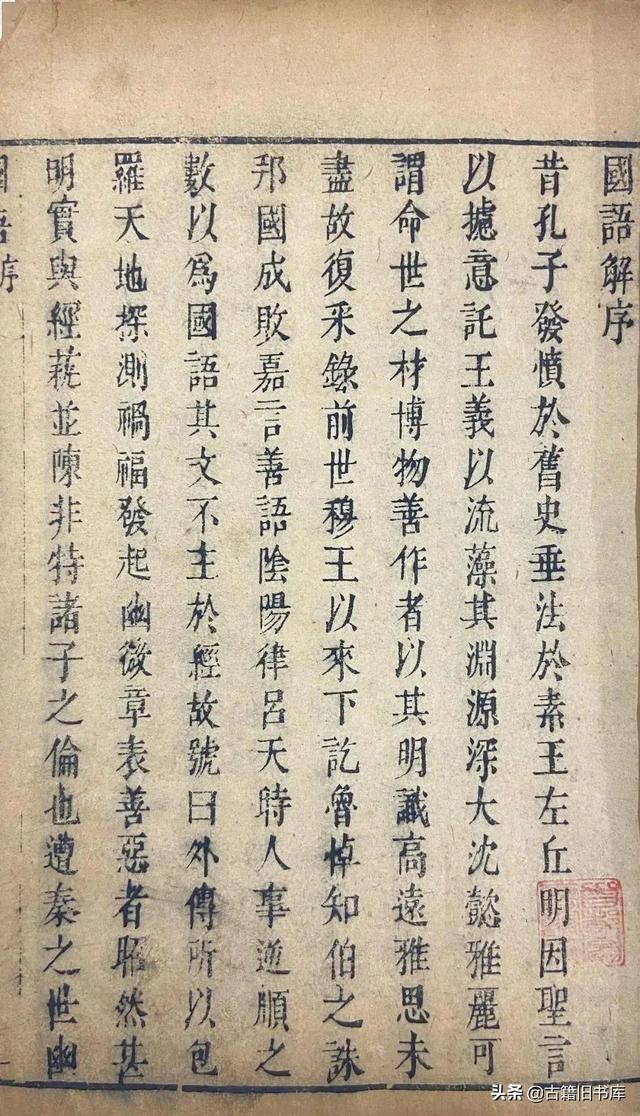 國語解序
昔孔子發憤於舊史垂法於素王左丘明因聖言
以攄意託王義以流藻其淵源深大沈懿雅麗可
謂命世之材博物善作者以其明識高遠雅思未
盡故復采錄前世穆王以來下訖魯悼知伯之誅
邦國成敗嘉言善語陰陽律呂天時人事逆順之
數以爲國語其文不主於經故號曰外傳所以包
羅天地探測禍福發起幽微章表善惡者昭然甚
明實與經蓺並陳非特諸子之倫也遭秦之世幽
國語序
頭条 @古籍旧书库